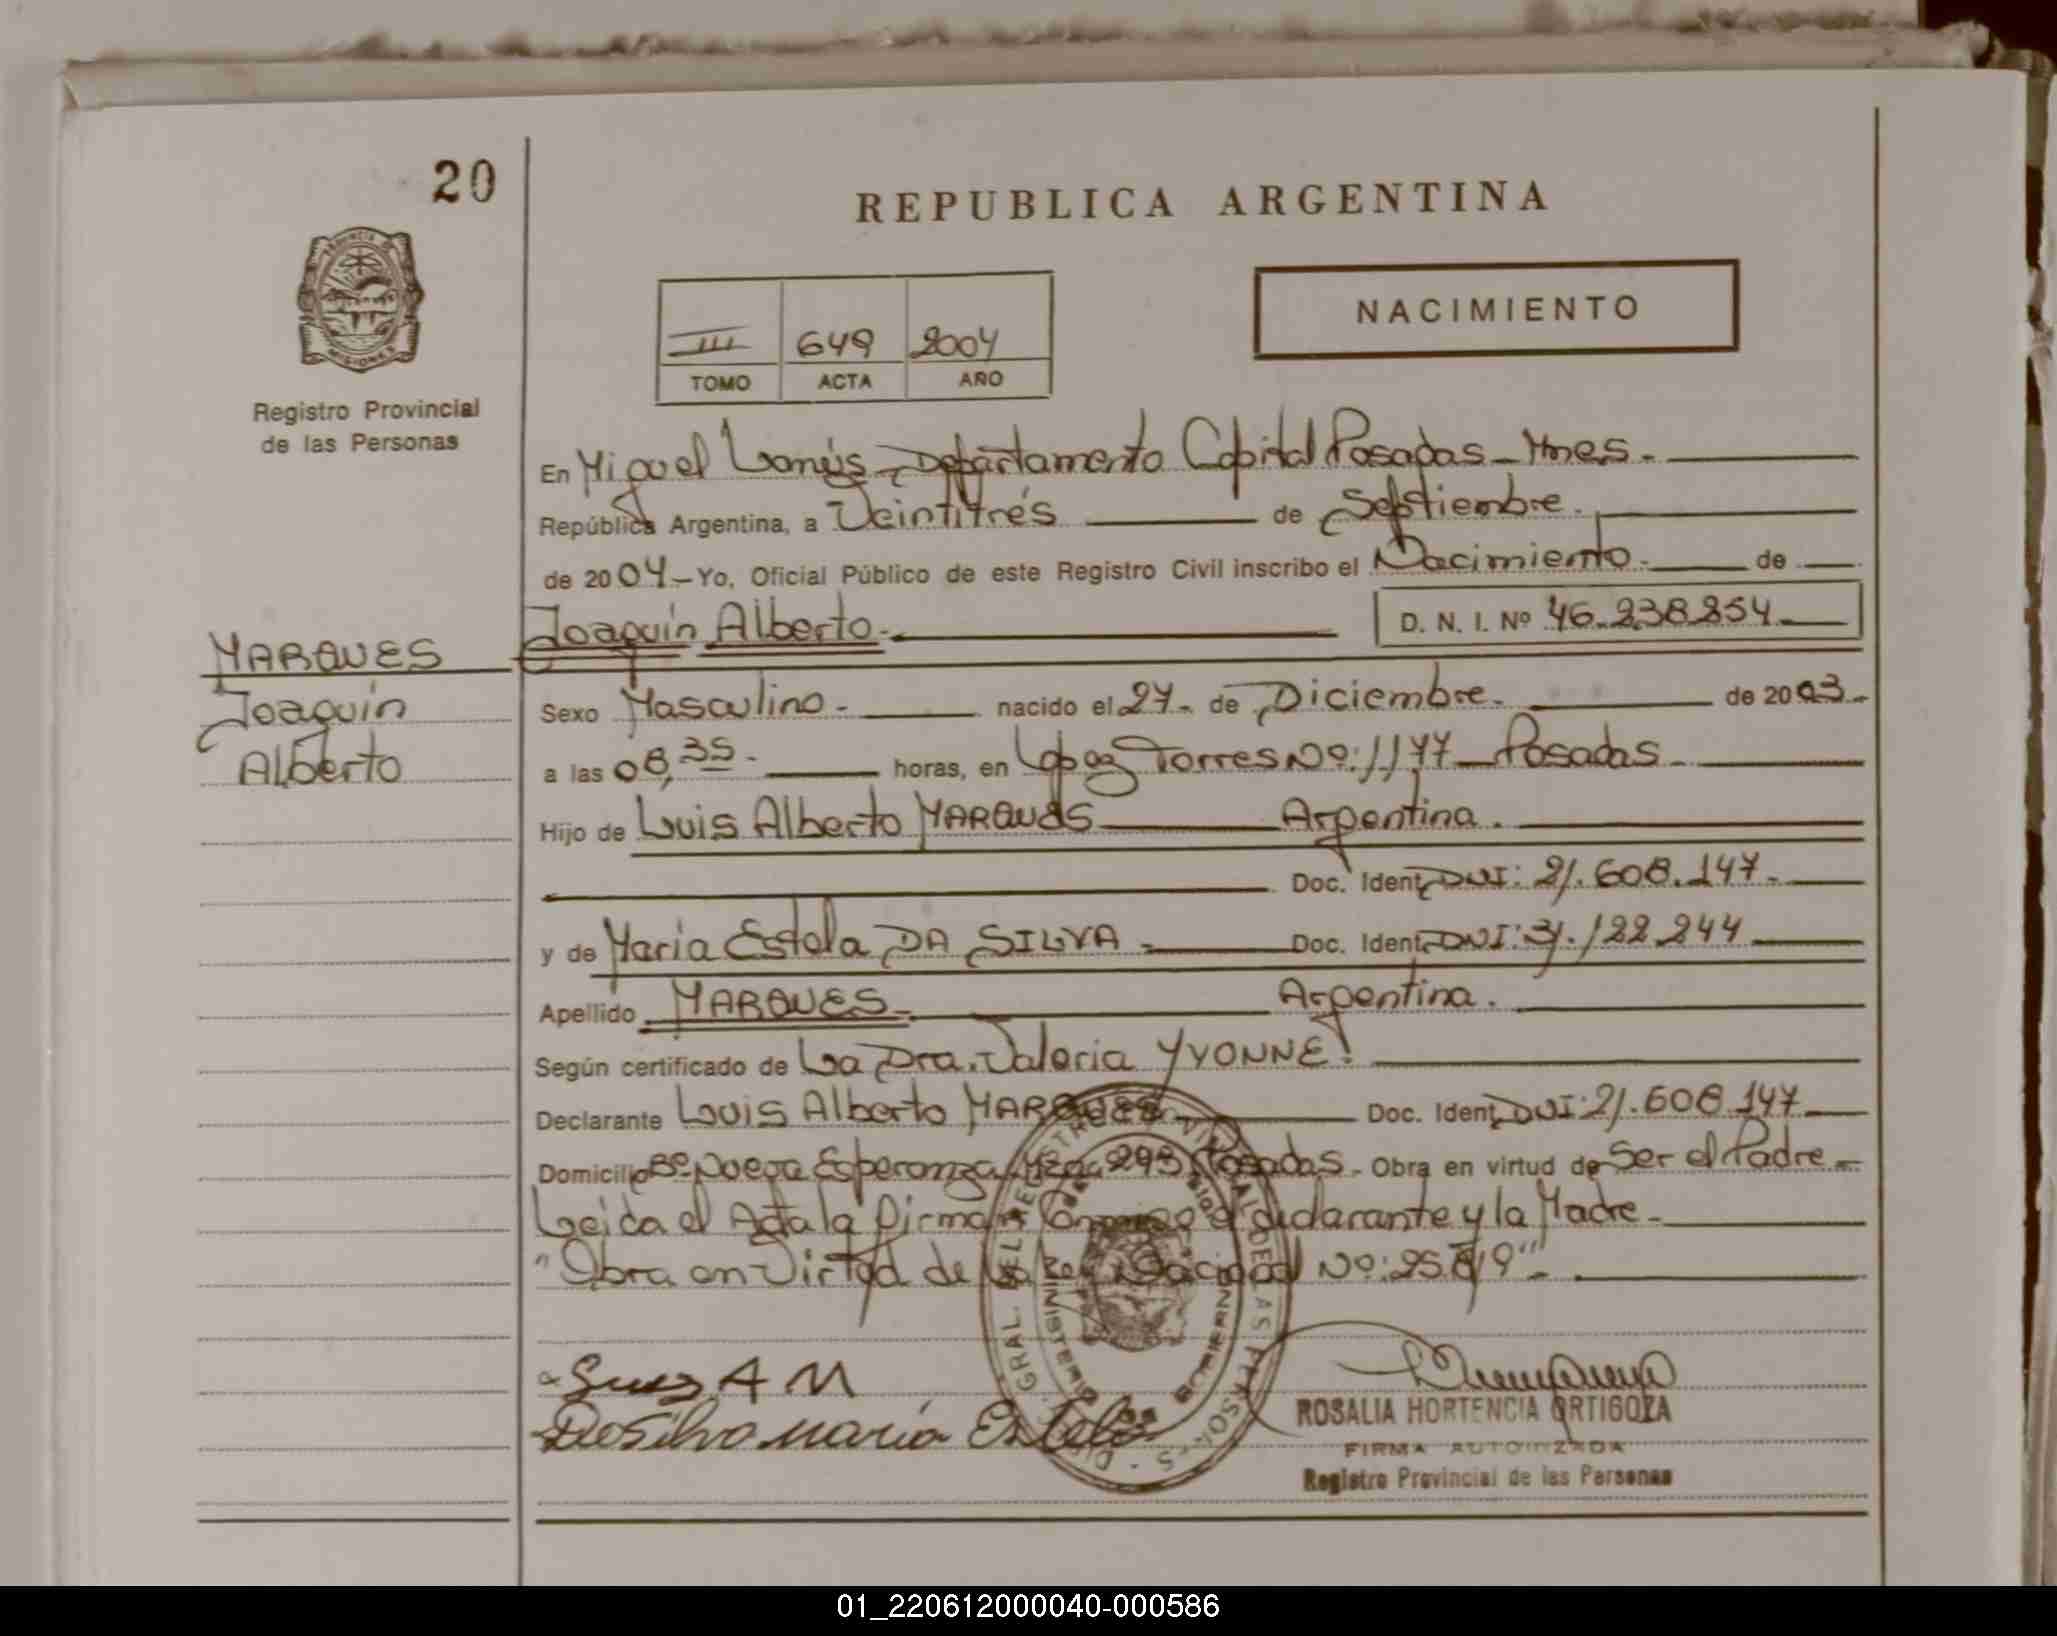 20
REPUBLICA ARGENTINA
NACIMIENTO
III 649 2004
TOMO ACTA AÑO
PROVINCIA DE
MISIONES
Registro Provincial
de las Personas
En Miguel Lanús, Departamento Capital Posadas - Mnes.
República Argentina, a Veintitrés de Septiembre.
de 2004.- Yo, Oficial Público de este Registro Civil inscribo el Nacimiento. de
Joaquín Alberto.- D. N. I. Nº 46.238.254.
MARQUES
Joaquín
Alberto
Sexo Masculino.- nacido el 27. de Diciembre. de 2003.-
a las 08,35.- horas, en López Torres Nº: 1177 - Posadas.
Hijo de Luis Alberto MARQUES Argentina.
Doc. Ident. DNI: 21.608.147.-
y de María Estela DA SILVA.- Doc. Ident. DNI: 31.122.244
Apellido MARQUES.- Argentina.
Según certificado de La Dra. Valeria YVONNE.
Declarante Luis Alberto MARQUES.- Doc. Ident. DNI: 21.608.147
Domicilio Bº Nueva Esperanza 293 Posadas.- Obra en virtud de Ser el Padre.-
Leida el Acta la firman Conmigo el declarante y la Madre.-
"Obra en Virtud de la Ley Nacional Nº: 25.819".-
Luis A M
Da Silva María Estela
ROSALIA HORTENCIA ORTIGOZA
FIRMA AUTORIZADA
Registro Provincial de las Personas
01_220612000040-000586